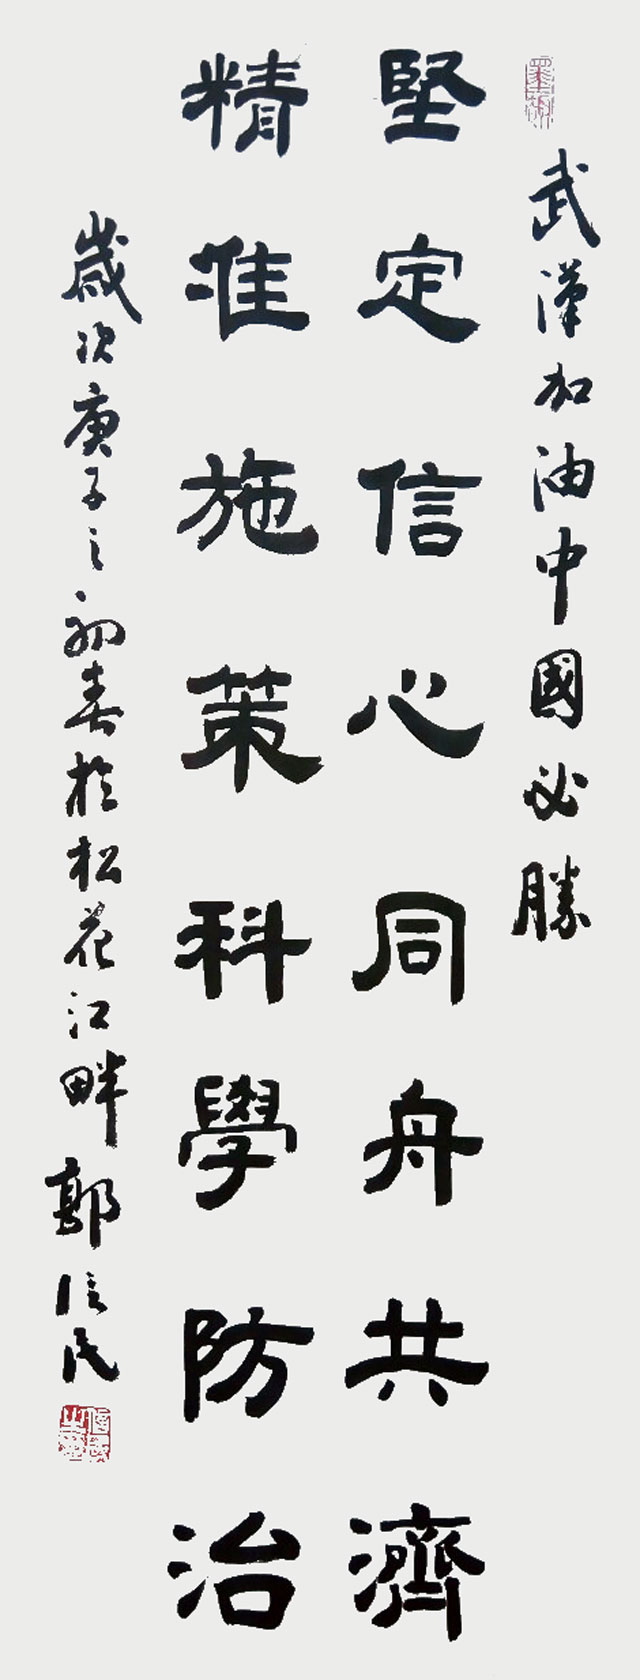 武漢加油中國必勝
堅定信心同舟共濟
精准施策科學防治
歲次庚子之初春於松花江畔郭信民